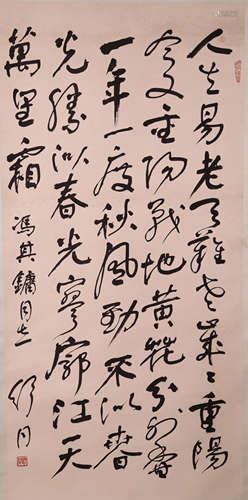 人生易老天難老歲々重陽
今又重阳戰地黄花分外香
一年一度秋風勁不似春
光勝似春光寥廓江天
萬里霜 馮其鏞同志
舒同